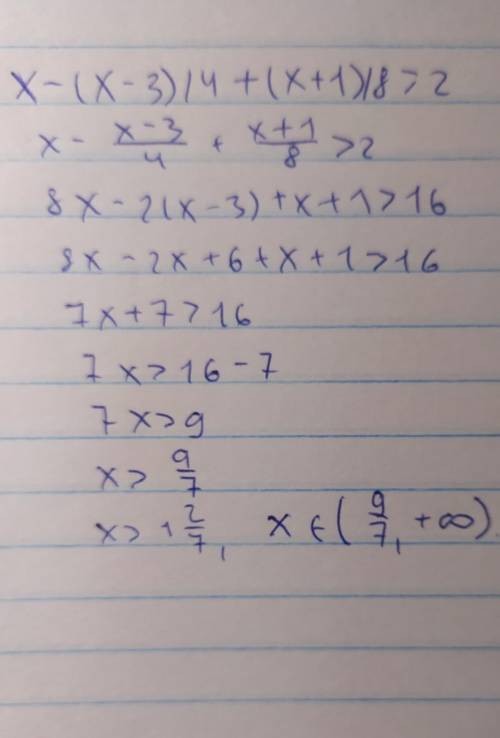 x-(x-3)/4+(x+1)/8>2
x - \frac{x-3}{4} + \frac{x+1}{8} >2
8x-2(x-3)+x+1>16
8x-2x+6+x+1>16
7x+7>16
7x>16-7
7x>9
x> \frac{9}{7}
x> 1\frac{2}{7}, x∈(\frac{9}{7}, +∞)